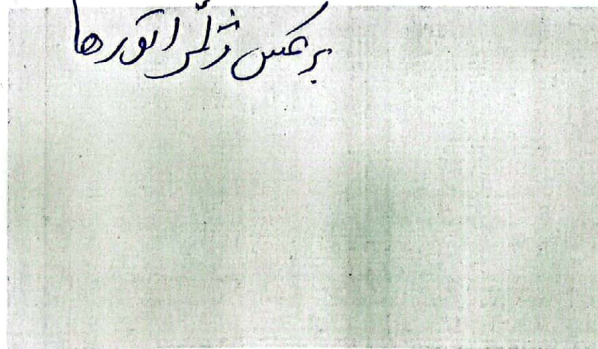 برعکس ژنراتورها